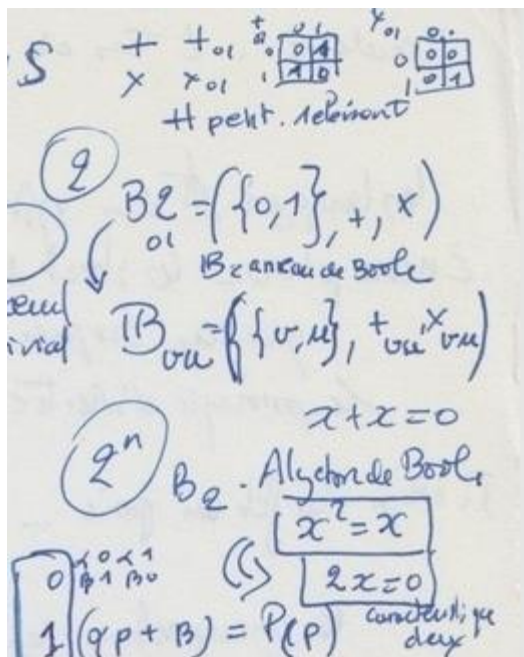 S + +₀₁ + 0 1 ×₀₁ 0 1
× ×₀₁ 0 0 1 0 0 0
1 1 0 1 0 1
# petit.
2
B2 = ({0,1}, +, ×)
01
B2 anneau de Boole
𝔹vu = ({v,u}, +vu, ×vu)
x + x = 0
2ⁿ
B2 - Algèbre de Boole
x² = x
2x = 0
caractéristique
deux
0 α0 α1
β1 β0
1 (αp + β) = P(p)